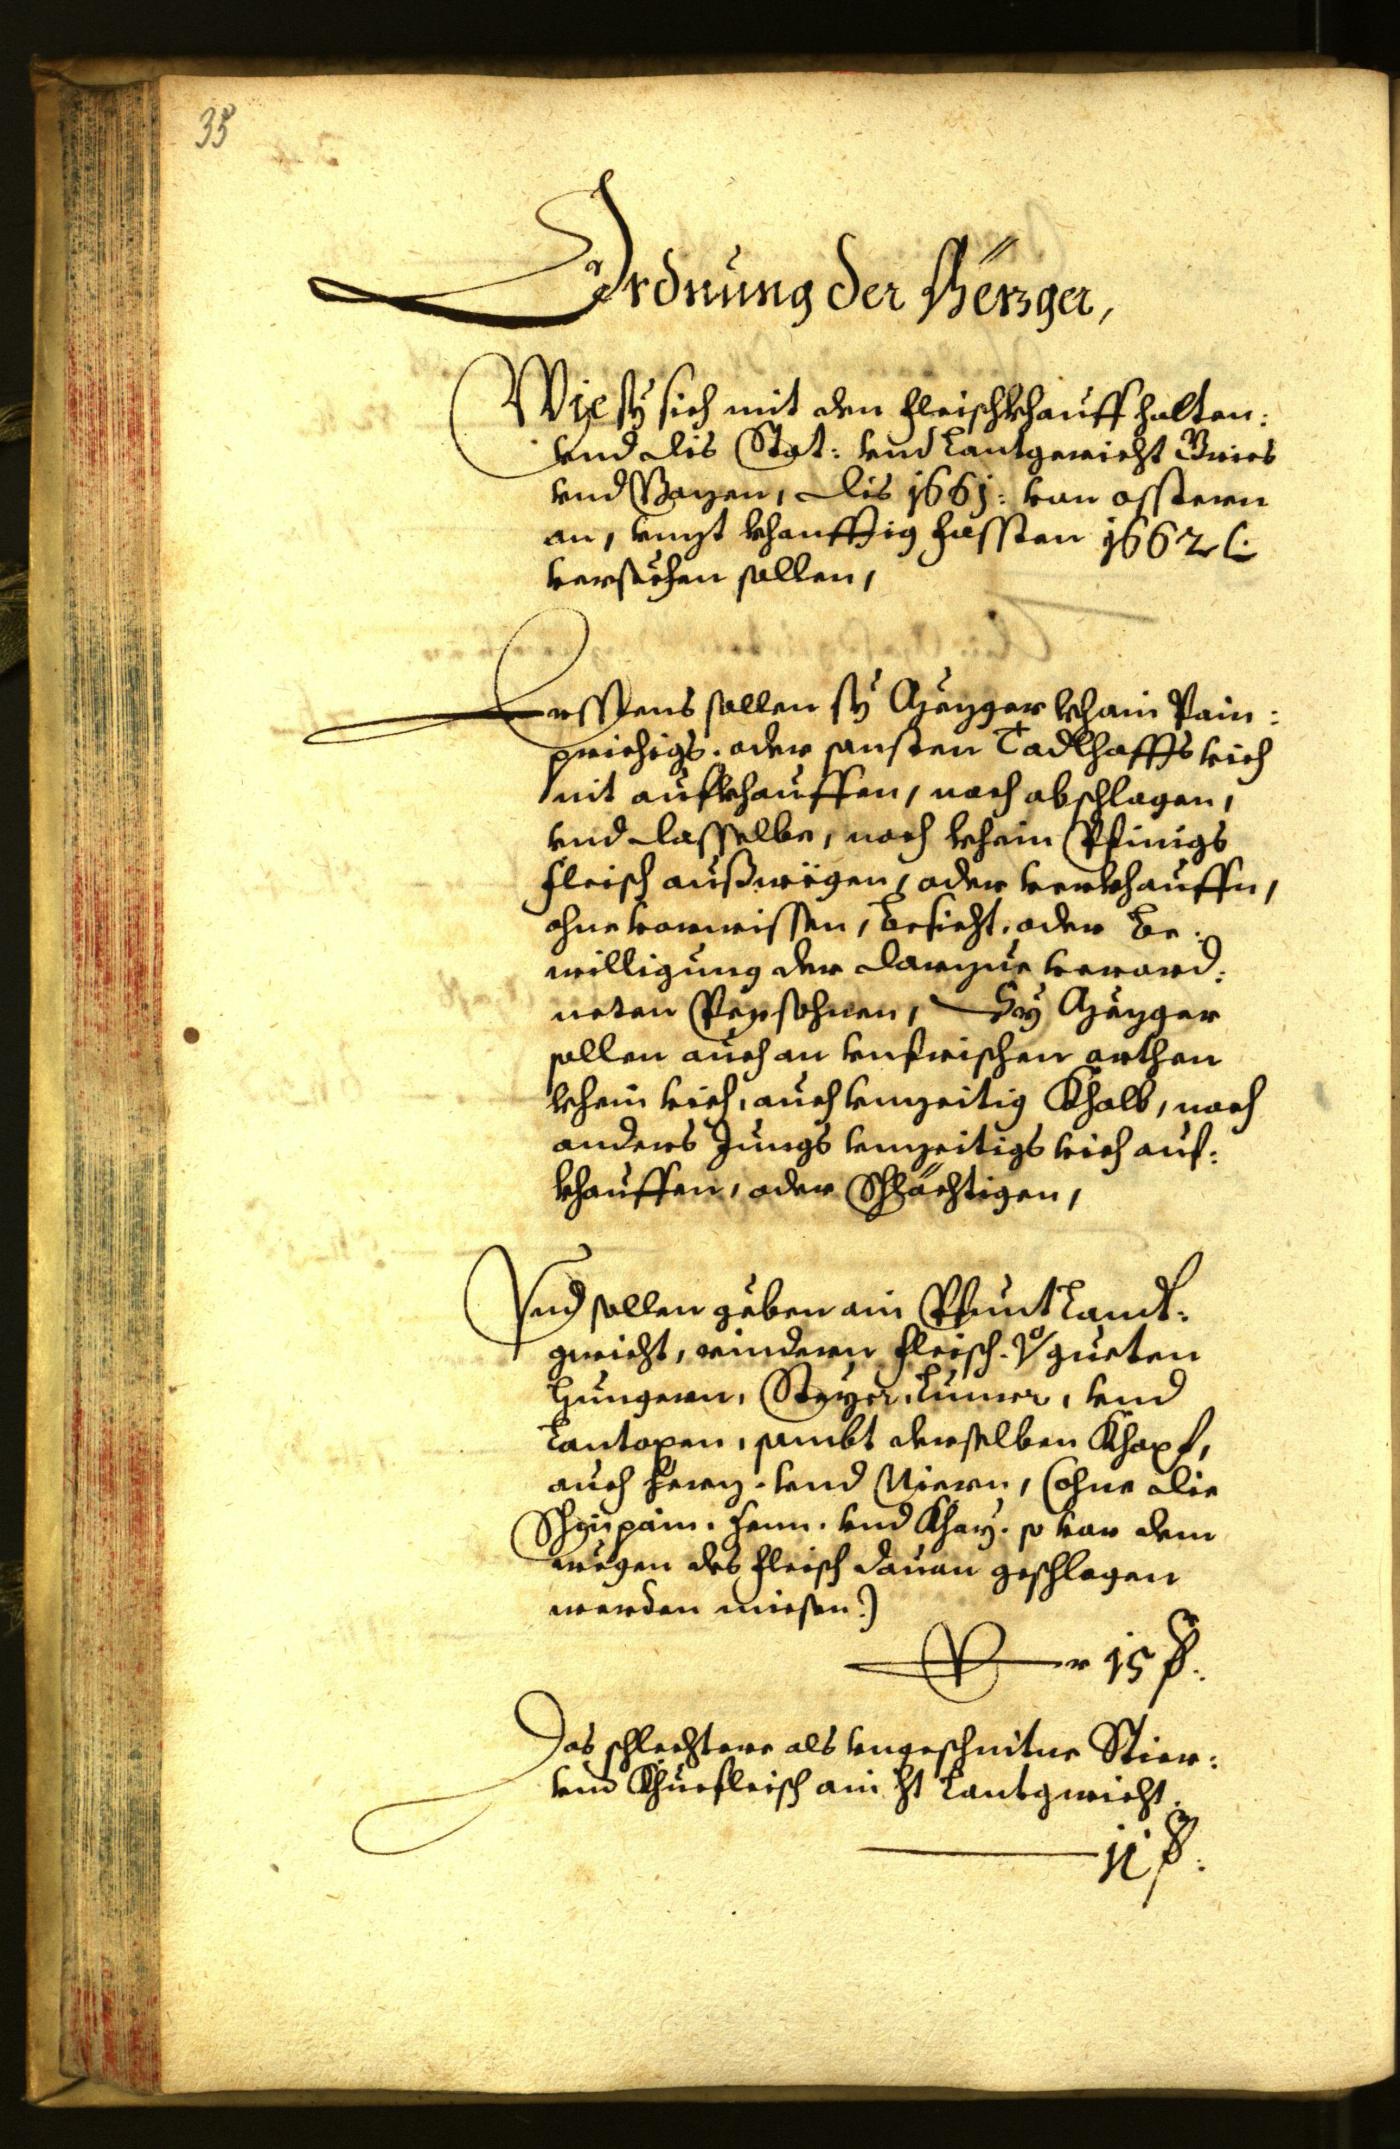 35
Ordnung der Mezger,
Wie sy sich mit den fleischkhauff halten:
vnd dis Stat: vnd Lantgericht Gries
vnd Bozen, dis 1661: von osstern
an, vnzt khonfftig fassten 1662
versechen sollen,
Erstens sollen sy Mezger khain Pain:
prichigs. oder sonsten Tadlhaffts vich
nit aufkhauffen, noch abschlagen,
vnd dasselbe, noch khein Pfinigs
fleisch außwegen, oder verkhauffn,
ohne vorwissen, besicht. oder be:
willigung der darzue verord:
neten Persohnen, Sy Mezger
sollen auch an vnfrischen orthen
khein vich, auch vnzeitig Khalb, noch
anders Jungs vnzeitigs vich auf:
khauffen, oder Schlächtigen,
Vnd sollen geben ain Pfunt Landt:
gwicht, rinderen fleisch. gueten
Hungern, Steyer, vnd
Lantoxen, sambt derselben Khopf,
auch herz. vnd Niern, (ohne die
Schinpain. hern. vnd so vor dem
wegen des fleisch dauon geschlagen
werden miesen.)
Per 15 ß.
Das schlechtere als vngeschnitne Stier:
vnd Khuefleisch ain lb Lantgwicht.
11 ß.